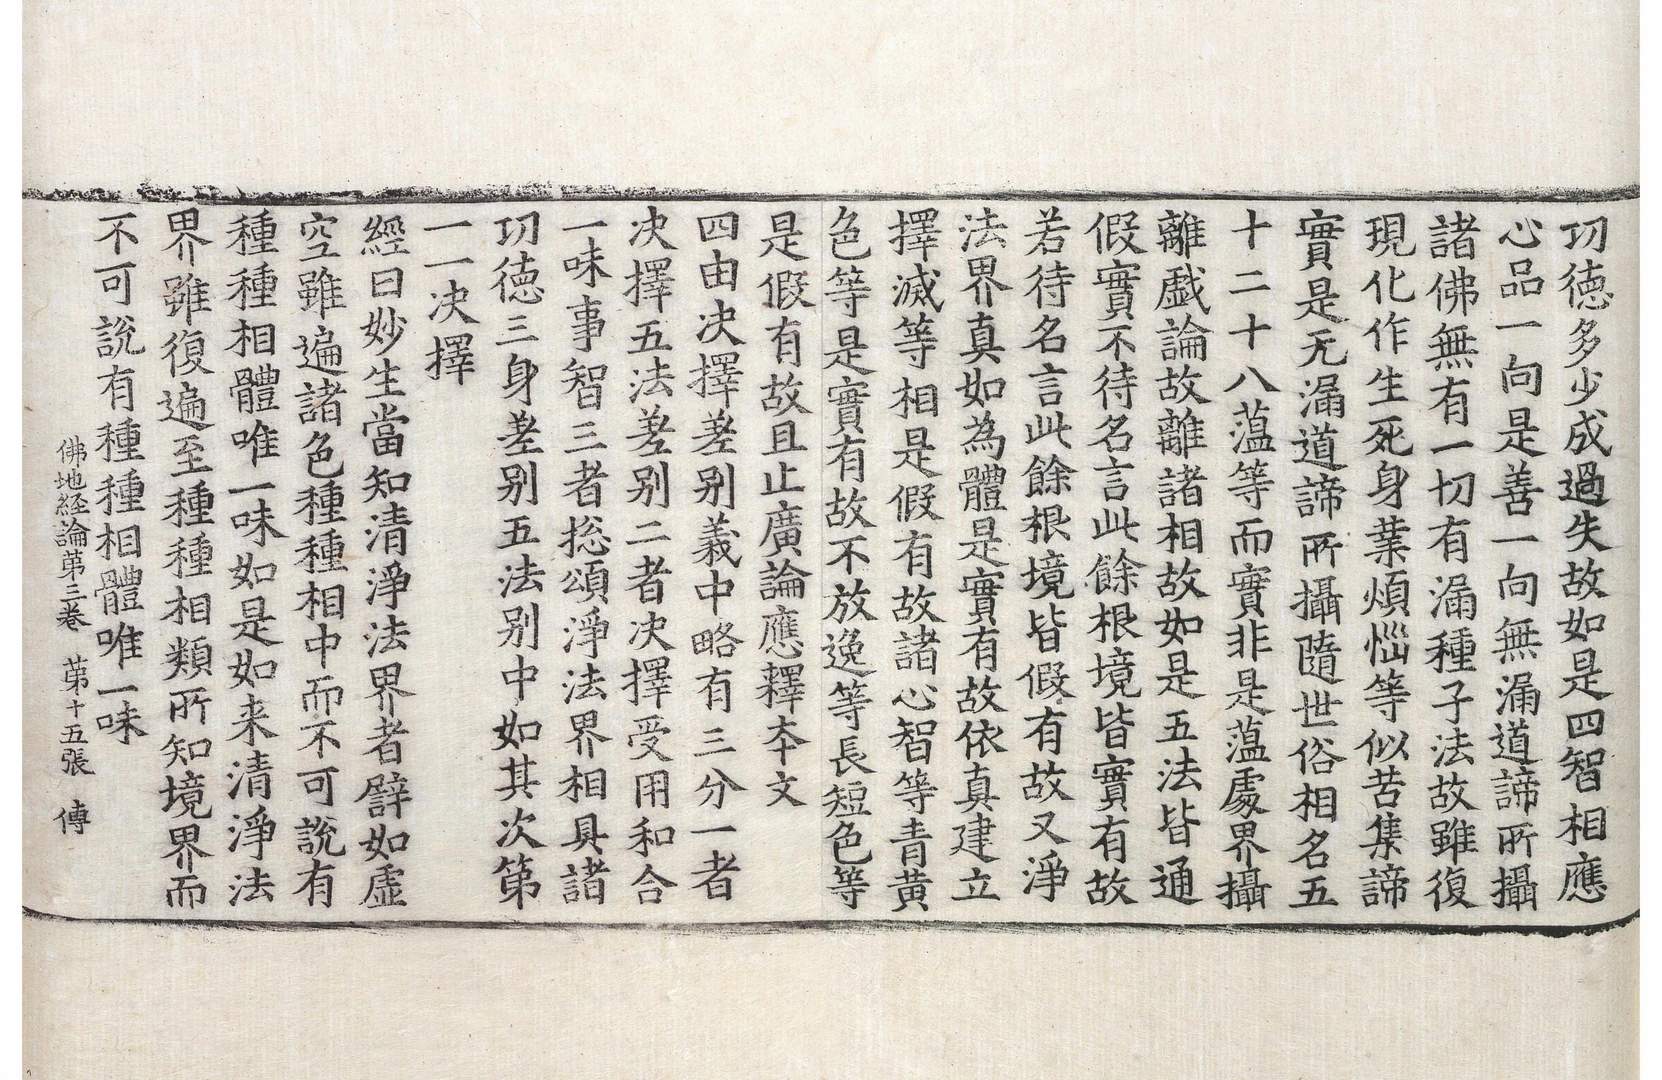 㓛德多少成過失故如是四智相應
心品一向是善一向無漏道諦所攝
諸佛無有一切有漏種子法故雖復
現化作生死身業煩惱等似苦集諦
實是无漏道諦所攝隨世俗相名五
十二十八蕰等而實非是蕰處界攝
離戱論故離諸相故如是五法皆通
假實不待名言此餘根境皆實有故
若待名言此餘根境皆假有故又淨
法界真如為體是實有故依真建立
擇滅等相是假有故諸心智等青黃
色等是實有故不放逸等長短色等
是假有故且止廣論應釋本文
四由决擇差别義中略有三分一者
决擇五法差别二者决擇受用和合
一味事智三者揔頌淨法界相具諸
㓛德三身差别五法别中如其次第
一一决擇
經曰妙生當知清淨法界者譬如虛
空雖遍諸色種種相中而不可說有
種種相體唯一味如是如来清淨法
界雖復遍至種種相類所知境界而
不可說有種種相體唯一味
佛地経論第三卷 第十五張 傳